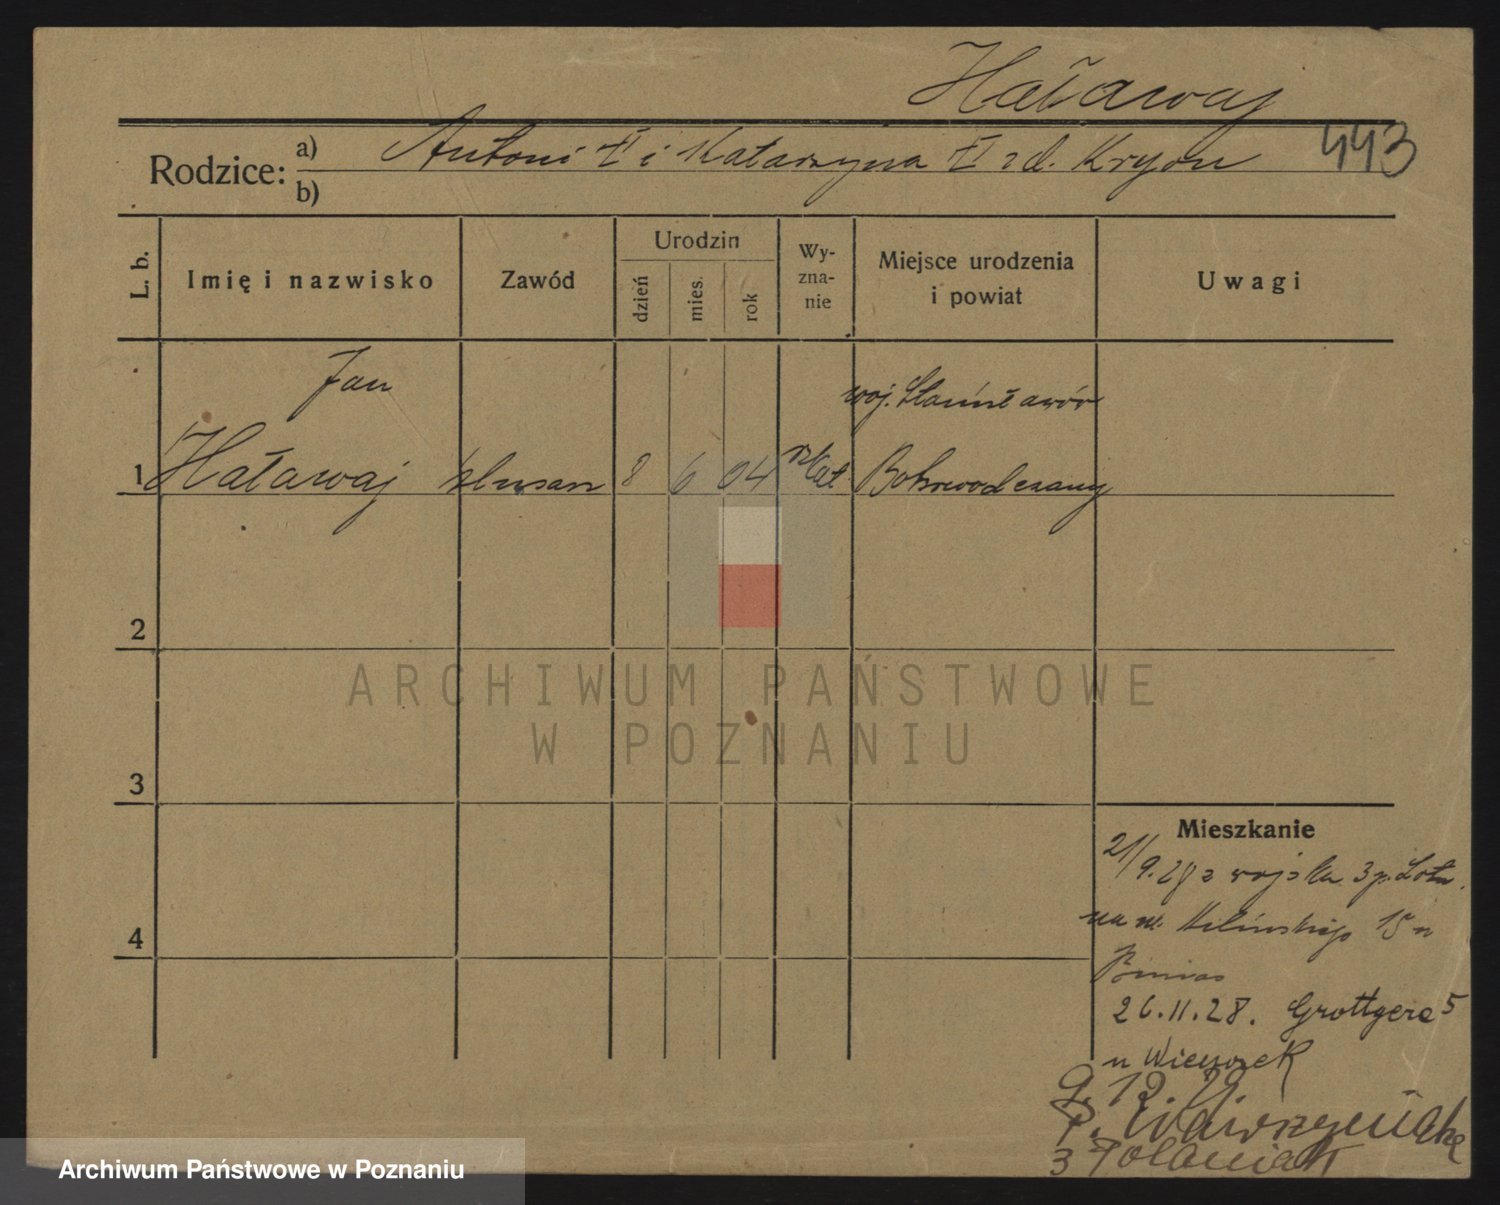 Haławaj
443
Rodzice: a) Antoni † i Katarzyna † zd. Kryon
b)
L. b. Imię i nazwisko Zawód Urodzin dzień mies. rok Wyznanie Miejsce urodzenia i powiat Uwagi
Jan woj. Stanisławów
1 Haławaj ślusarz 8 6 04 rzkat Bohorodczany
2
ARCHIWUM PAŃSTWOWE
W POZNANIU
3
Mieszkanie
21/9.28 z wojska 3 p. Lotn.
4
na ul. Kilińskiego 15 u
26.11.28. Grottgera 5
u Wieczorek
9. 12. 29
P. Wawrzyniaka
3 Polaniak
Archiwum Państwowe w Poznaniu